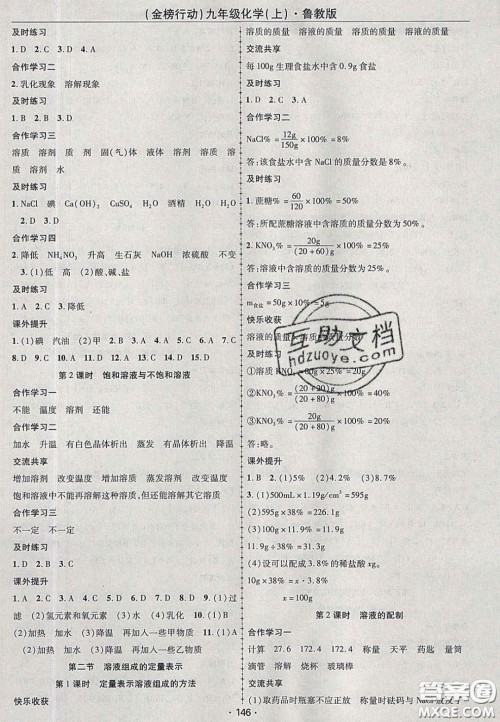 (金榜行动)九年级化学(上)·鲁教版
及时练习
1. D 2. C 3. A
合作学习二
2. 乳化现象 溶解现象
及时练习
1. B 2. B
合作学习三
溶质 溶剂 质 剂 固(气)体 液体 溶剂 溶质 溶剂 溶
质 溶剂 水
及时练习
1. NaCl 水 Ca(OH)₂ CuSO₄ H₂O 酒精 H₂O 水
2. D 3. D
合作学习四
2. 降低 NH₄NO₃ 升高 生石灰 NaOH 浓硫酸 不变
3. (1)低 高 (2)酸、碱、盐
及时练习
1. A 2. D 3. 降低
课外提升
1. (1)碘 汽油 (2)甲 2. D 3. C 4. C 5. C 6. A 7. C
8. D 9. C 10. C 11. C 12. B 13. D 14. C 15. C
第2课时 饱和溶液与不饱和溶液
合作学习一
不能 温度 溶剂 还能
合作学习二
加水 升温 有白色晶体析出 蒸发 有晶体析出 降温
交流共享
增加溶剂 改变温度 增加溶质 蒸发溶剂 改变温度
在溶液中不能再溶解这种溶质,但还能溶解其它溶质
合作学习三
不一定 不一定
及时练习
1. D 2. D
课外提升
1. D 2. C 3. A 4. A 5. A 6. D 7. D 8. D 9. C 10. (1)过
滤 (2)氢元素和氧元素 (3)水 (4)乳化 11. (1)B
(2)加热 加水 (3)降温 再加入一些甲物质
12. (1)B (2)加热 加水 (3)降温 再加入一些乙物质
第二节 溶液组成的定量表示
第1课时 定量表示溶液组成的方法
快乐收获
溶质的质量 溶液的质量 溶质的质量 溶剂的质量
交流共享
每100g生理食盐水中含0.9g食盐
及时练习
1. D 2. C 3. A
合作学习二
NaCl% = 12g/150g × 100% = 8%
答:该食盐水中含NaCl的质量分数是8%。
及时练习
1. 蔗糖% = 60/120 × 100% = 50%
答:所配蔗糖溶液中含溶质的质量分数为50%。
2. KNO₃% = 20g/(20+60)g × 100% = 25%
答:溶液中含溶质的质量分数为25%。
合作学习三
m食盐 = 50g × 10% = 5g
快乐收获
溶液的质量 溶质的质量分数
及时练习
①KNO₃% = 20g/(20+80)g × 100%
②KNO₃% = (20+20)g/(20+20+80)g × 100%
③KNO₃% = 20g/(20+80)g × 100%
答:略。
课外提升
1. B 2. (1)5% (2)4.2% (3)9.5%
3. (1)500mL × 1.19g/cm³ = 595g
(2)595g × 38% = 226.1g
(3)11.9g × 38% = 4.522g
11.9g ÷ 11.3% = 
(4)设可以配成3.8%的稀盐酸xg。
10g × 38% = x × 3.8%
x = 100g
第2课时 溶液的配制
合作学习一
计算 27.6 172.4 称量 天平 药匙 量筒
滴管 溶解 烧杯 玻璃棒
快乐收获
(1)取药品时瓶塞不应正放
·146·
互助文档
hdzuoye.com
答案圈
MXQE.COM